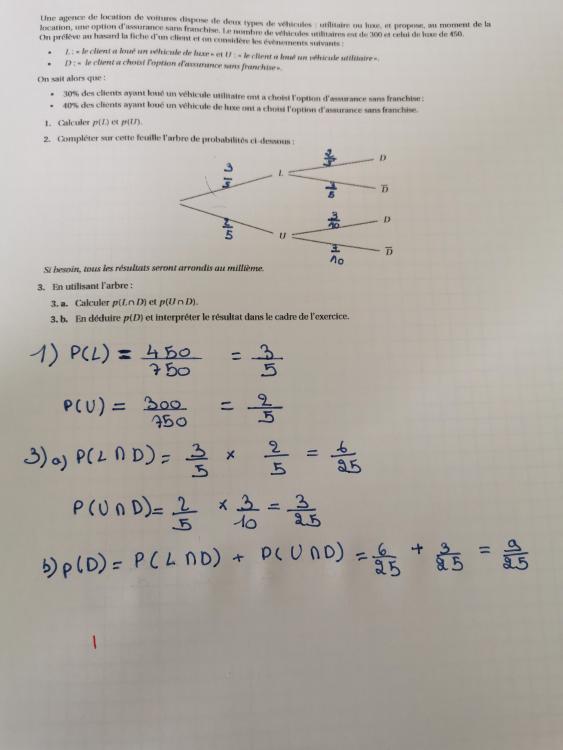 Une agence de location de voitures dispose de deux types de véhicules : utilitaire ou luxe, et propose, au moment de la
location, une option d'assurance sans franchise. Le nombre de véhicules utilitaires est de 300 et celui de luxe de 450.
On prélève au hasard la fiche d'un client et on considère les évènements suivants :
• L : « le client a loué un véhicule de luxe » et U : « le client a loué un véhicule utilitaire ».
• D : « le client a choisi l'option d'assurance sans franchise ».
On sait alors que :
• 30% des clients ayant loué un véhicule utilitaire ont a choisi l'option d'assurance sans franchise ;
• 40% des clients ayant loué un véhicule de luxe ont a choisi l'option d'assurance sans franchise.
1. Calculer p(L) et p(U).
2. Compléter sur cette feuille l'arbre de probabilités ci-dessous :
3/5 L 2/5 D
3/5 D̅
2/5 U 3/10 D
7/10 D̅
Si besoin, tous les résultats seront arrondis au millième.
3. En utilisant l'arbre :
3. a. Calculer p(L∩D) et p(U∩D).
3. b. En déduire p(D) et interpréter le résultat dans le cadre de l'exercice.
1) P(L) = 450/750 = 3/5
P(U) = 300/750 = 2/5
3) a) P(L∩D) = 3/5 × 2/5 = 6/25
P(U∩D) = 2/5 × 3/10 = 3/25
b) P(D) = P(L∩D) + P(U∩D) = 6/25 + 3/25 = 9/25